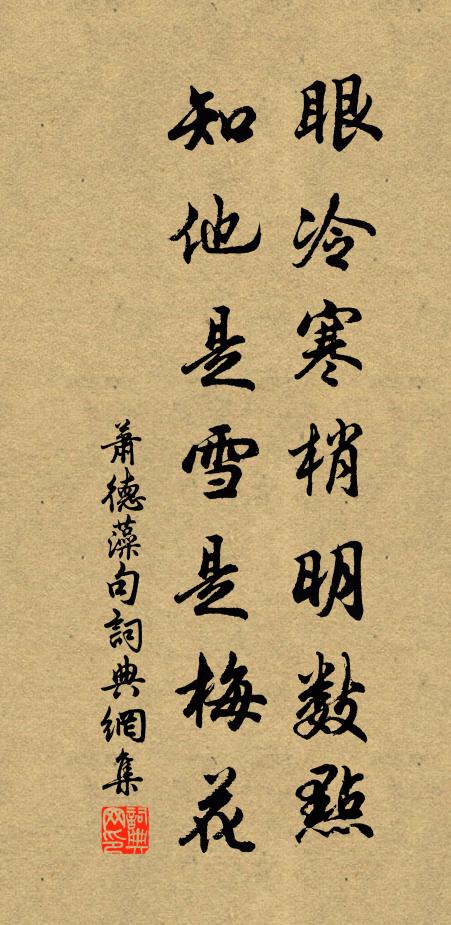 眼冷寒梢明數點
知他是雪是梅花
蕭德藻句詞典網集
詞典网印